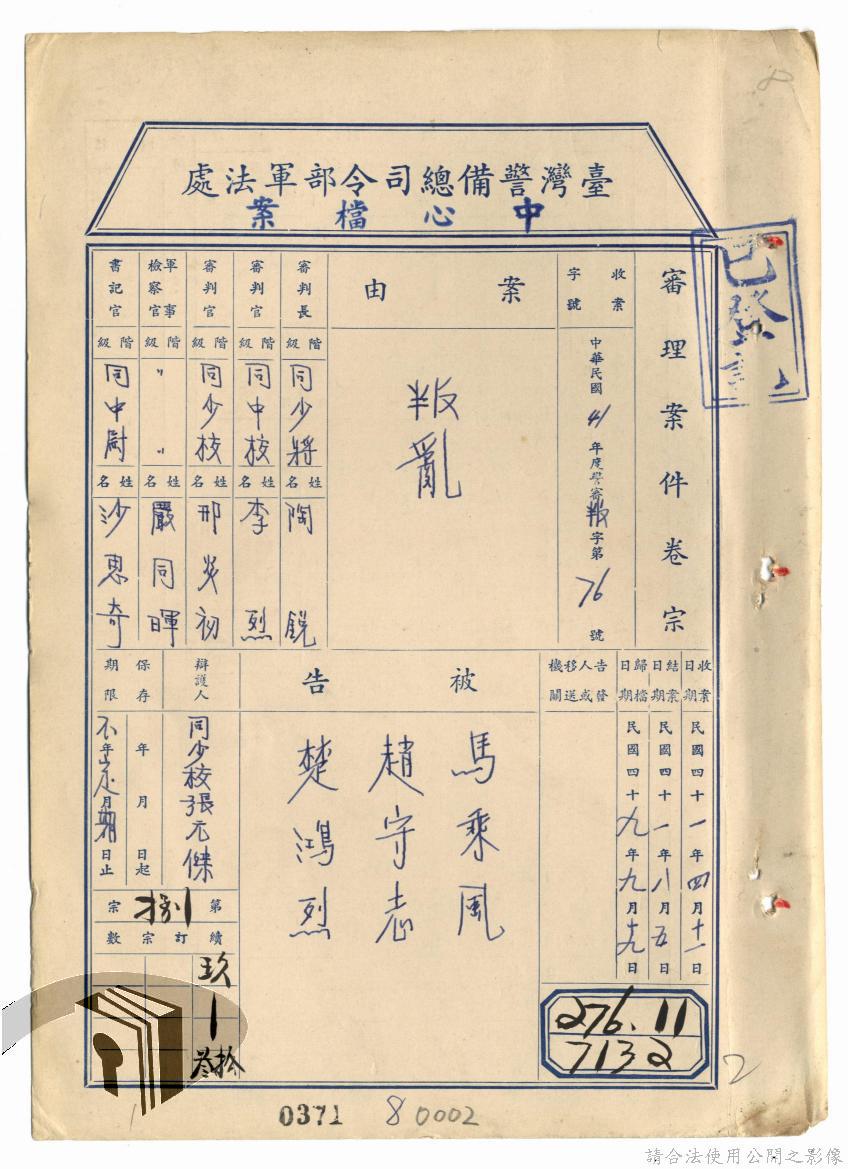 臺灣警備總司令部軍法處
中心檔案
已登記
審理案件卷宗
收案字號
中華民國41年度警審叛字第76號
案由
叛亂
審判長
階級
同少將
姓名
陶銳
審判官
階級
同中校
姓名
李烈
審判官
階級
同少校
姓名
邢炎初
軍事檢察官
階級
〃〃
姓名
嚴同暉
書記官
階級
同中尉
姓名
沙思奇
收案日期
民國四十一年四月十一日
結案日期
民國四十一年八月五日
歸檔日期
民國四十九年九月十九日
告發人或移送機關
被告
馬乘風
趙守志
楚鴻烈
辯護人
同少校張元傑
保存期限
年月日起
不定期
年月日止
第捌宗
續訂宗數
玖
叁拾
276.11
7132
0371
8
0002
2
請合法使用公開之影像